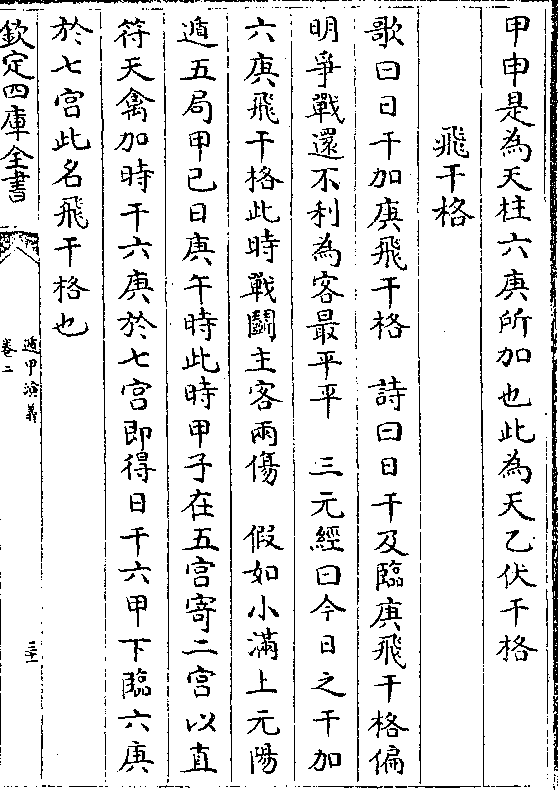 甲申是為天柱六庚所加也此為天乙伏干格
飛干格
歌曰日干加庚飛干格　詩曰日干及臨庚飛干格偏
明爭戰還不利為客最平平　三元經曰今日之干加
六庚飛干格此時戰鬭主客兩傷　假如小滿上元陽
遁五局甲己日庚午時此時甲子在五宫寄二宫以直
符天禽加時干六庚於七宫即得日干六甲下臨六庚
於七宫此名飛干格也
欽定四庫全書
遁甲演義
卷二